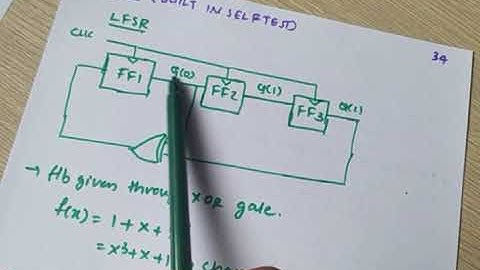 (BUILT IN SELFTEST)
LFSR
34
CLK
FF1 q(0) FF2 q(1) FF3 q(1)
→ f/b given through XOR gate.
f(x) = 1 + x +
= x³ + x + 1